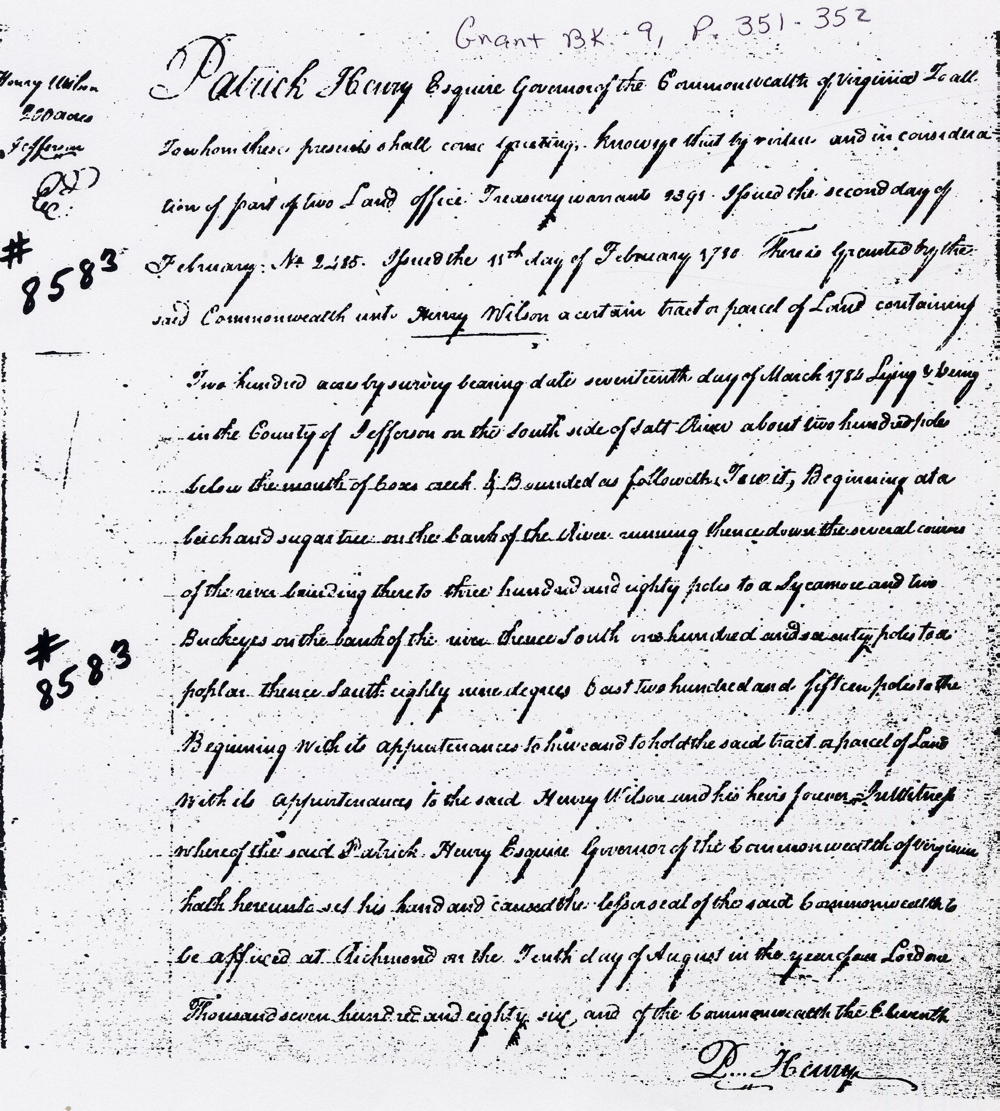 Grant BK. 9, P. 351-352
Henry Wilson
200 acres
Jefferson
#
8583
Patrick Henry Esquire Governor of the Commonwealth of Virginia To all
To whom these presents shall come greeting. Know ye that by virtue and in considera
tion of part of two Land office Treasury warrants 9391 Issued the second day of
February. No 2485. Issued the 11th day of February 1780 There is Granted by the
said Commonwealth unto Henry Wilson a certain tract or parcel of Land containing
Two hundred acres by survey bearing date seventeenth day of March 1784 Lying & being
in the County of Jefferson on the south side of Salt River about two hundred poles
below the mouth of Coxes creek & Bounded as followeth, Towit, Beginning at a
beich and sugar tree on the bank of the River running thence down the several courses
of the river binding thereto three hundred and eighty poles to a Sycamore and two
#
8583
Buckeyes on the bank of the river thence South one hundred and seventy poles to a
poplar thence South eighty nine degrees East two hundred and fifteen poles to the
Beginning with its appurtenances to have and to hold the said tract or parcel of Land
with its appurtenances to the said Henry Wilson and his heirs forever In Witness
whereof the said Patrick Henry Esquire Governor of the Commonwealth of Virginia
hath hereunto set his hand and caused the lesser seal of the said Commonwealth to
be affixed at Richmond on the Tenth day of August in the year of our Lord one
Thousand seven hundred and eighty six and of the Commonwealth the Eleventh
P. Henry